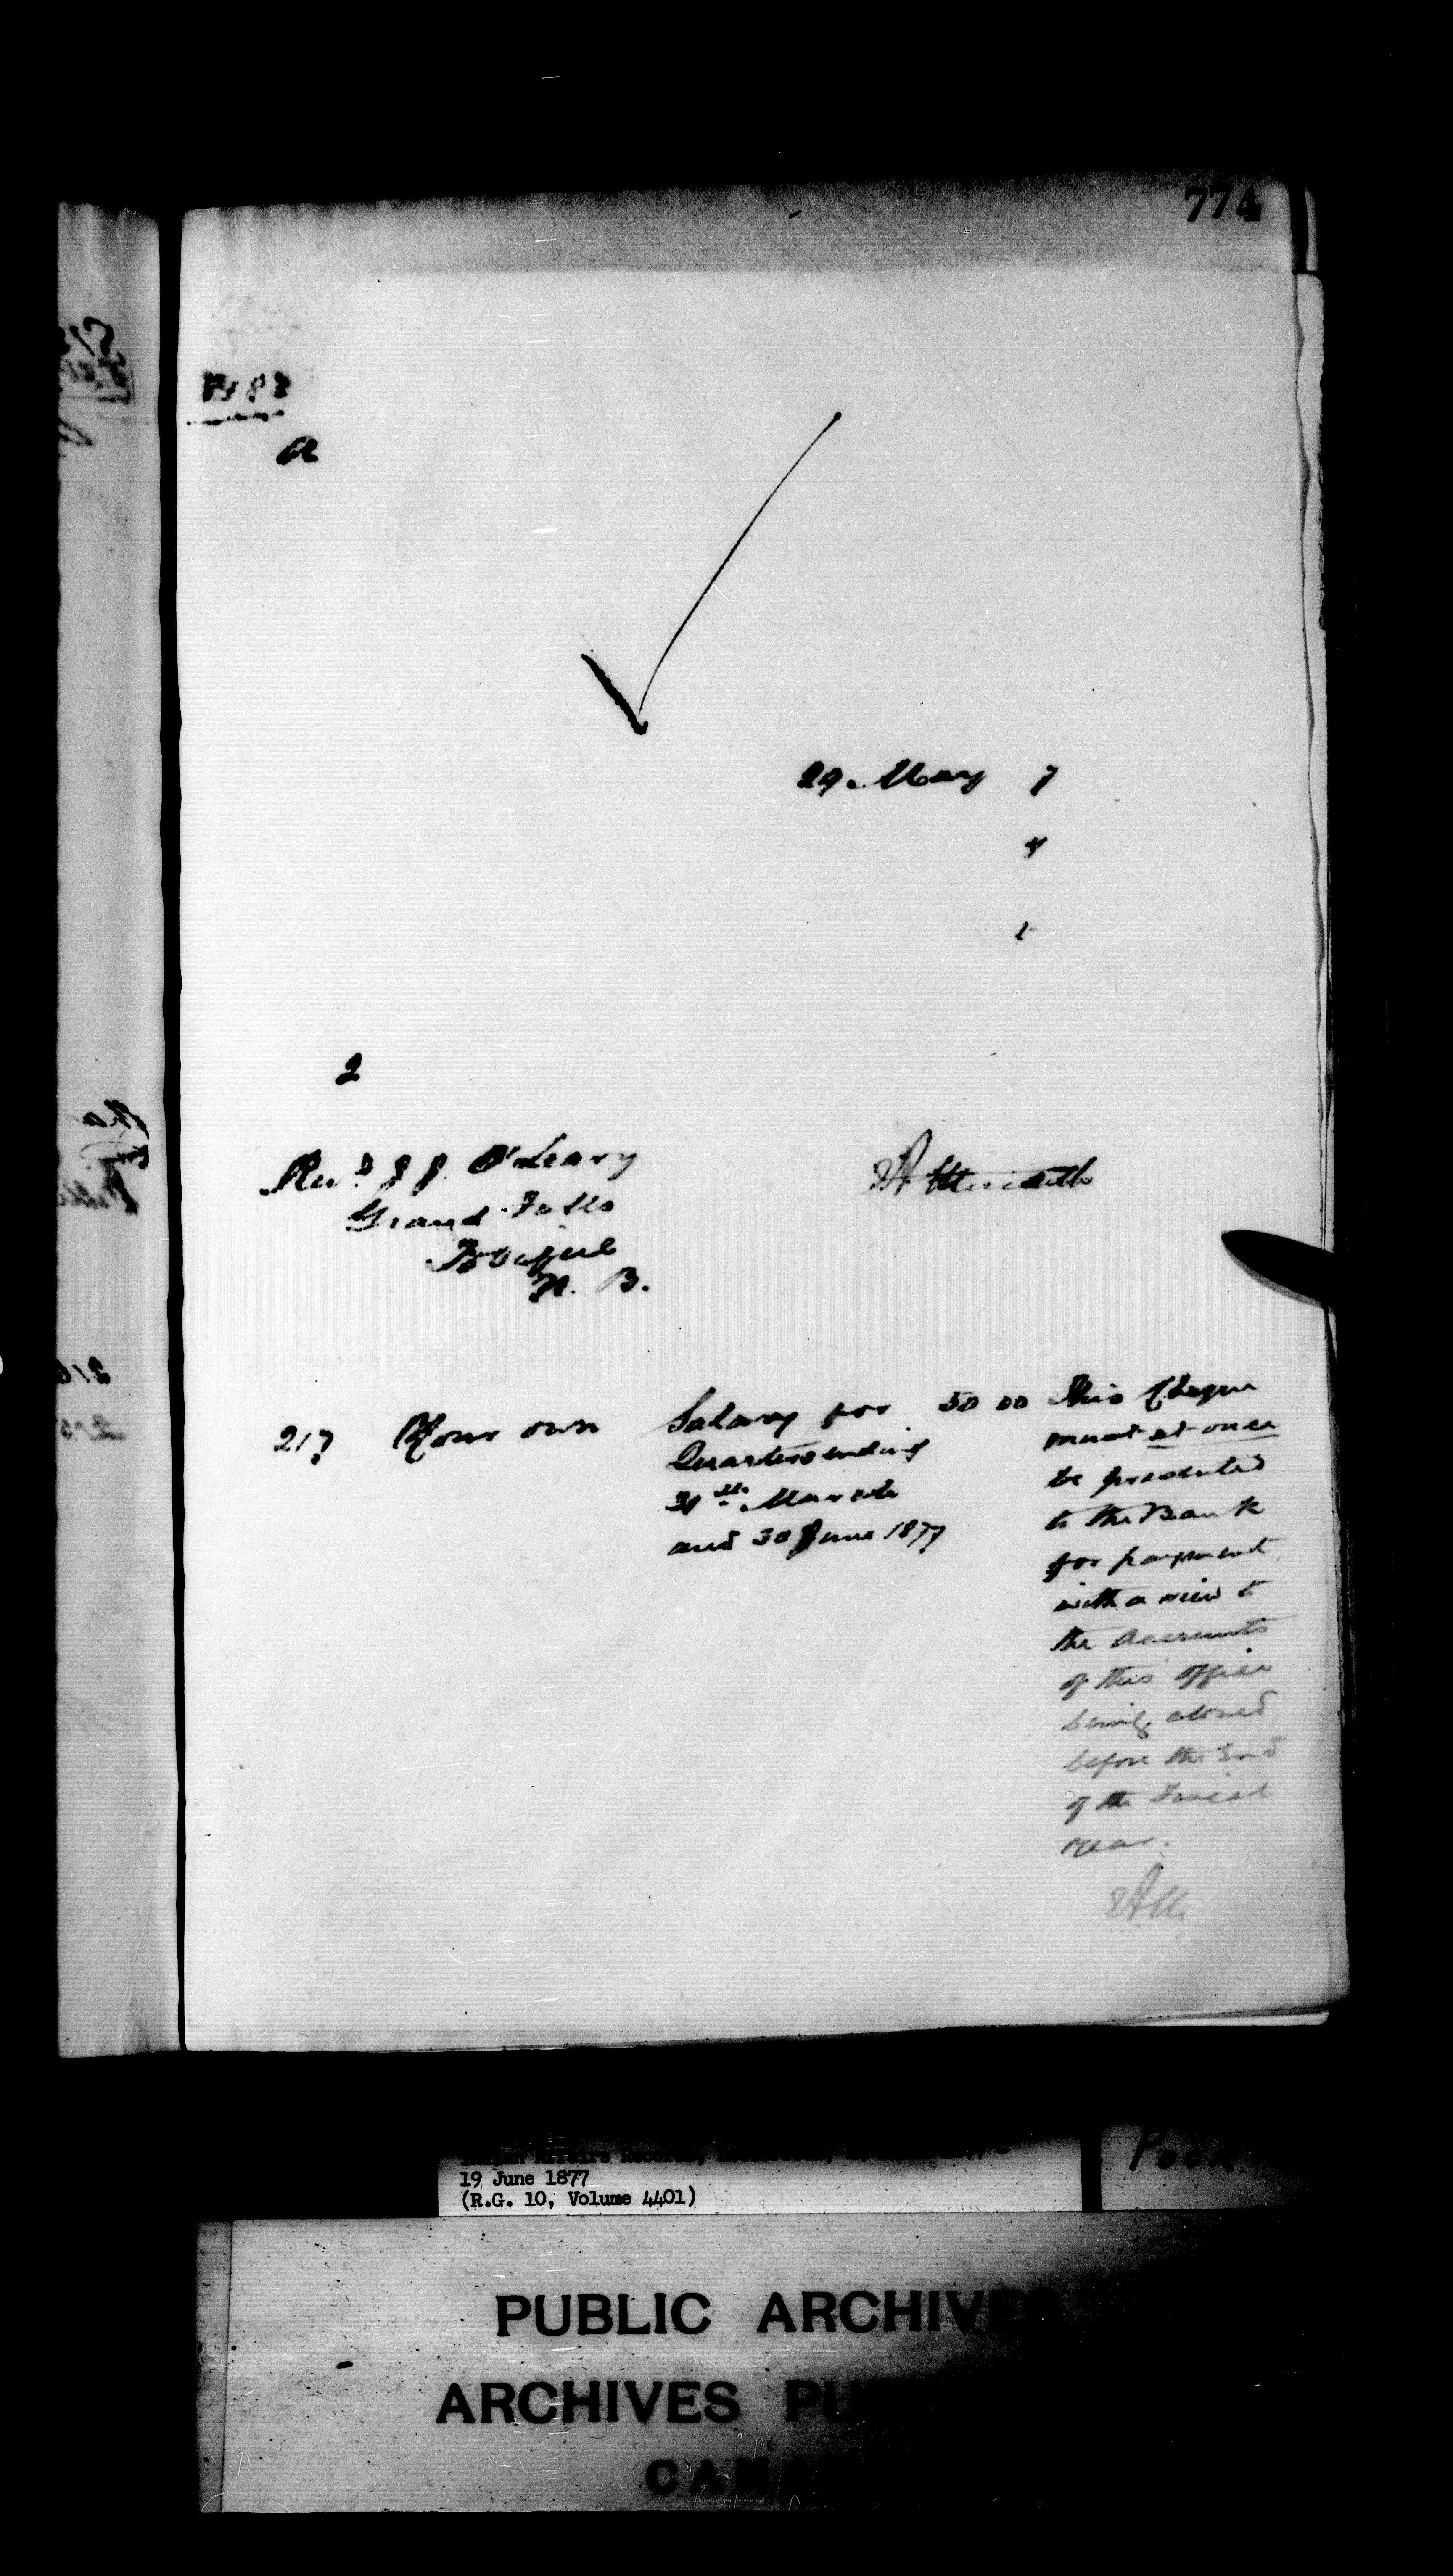 774
29 May 7
2
Revd J J O'Leary
Grand Falls
N. B.
EA Meredith
217 Your own Salary for 50 00 This Cheque
Quarters ending must at once
31st March be presented
and 30 June 1877 to the Bank
for payment
with a view to
the accounts
of this office
being closed
before the End
of the Fiscal
year.
EAM
19 June 1877
(R.G. 10, Volume 4401)
PUBLIC ARCHIVES
ARCHIVES PU
CANA